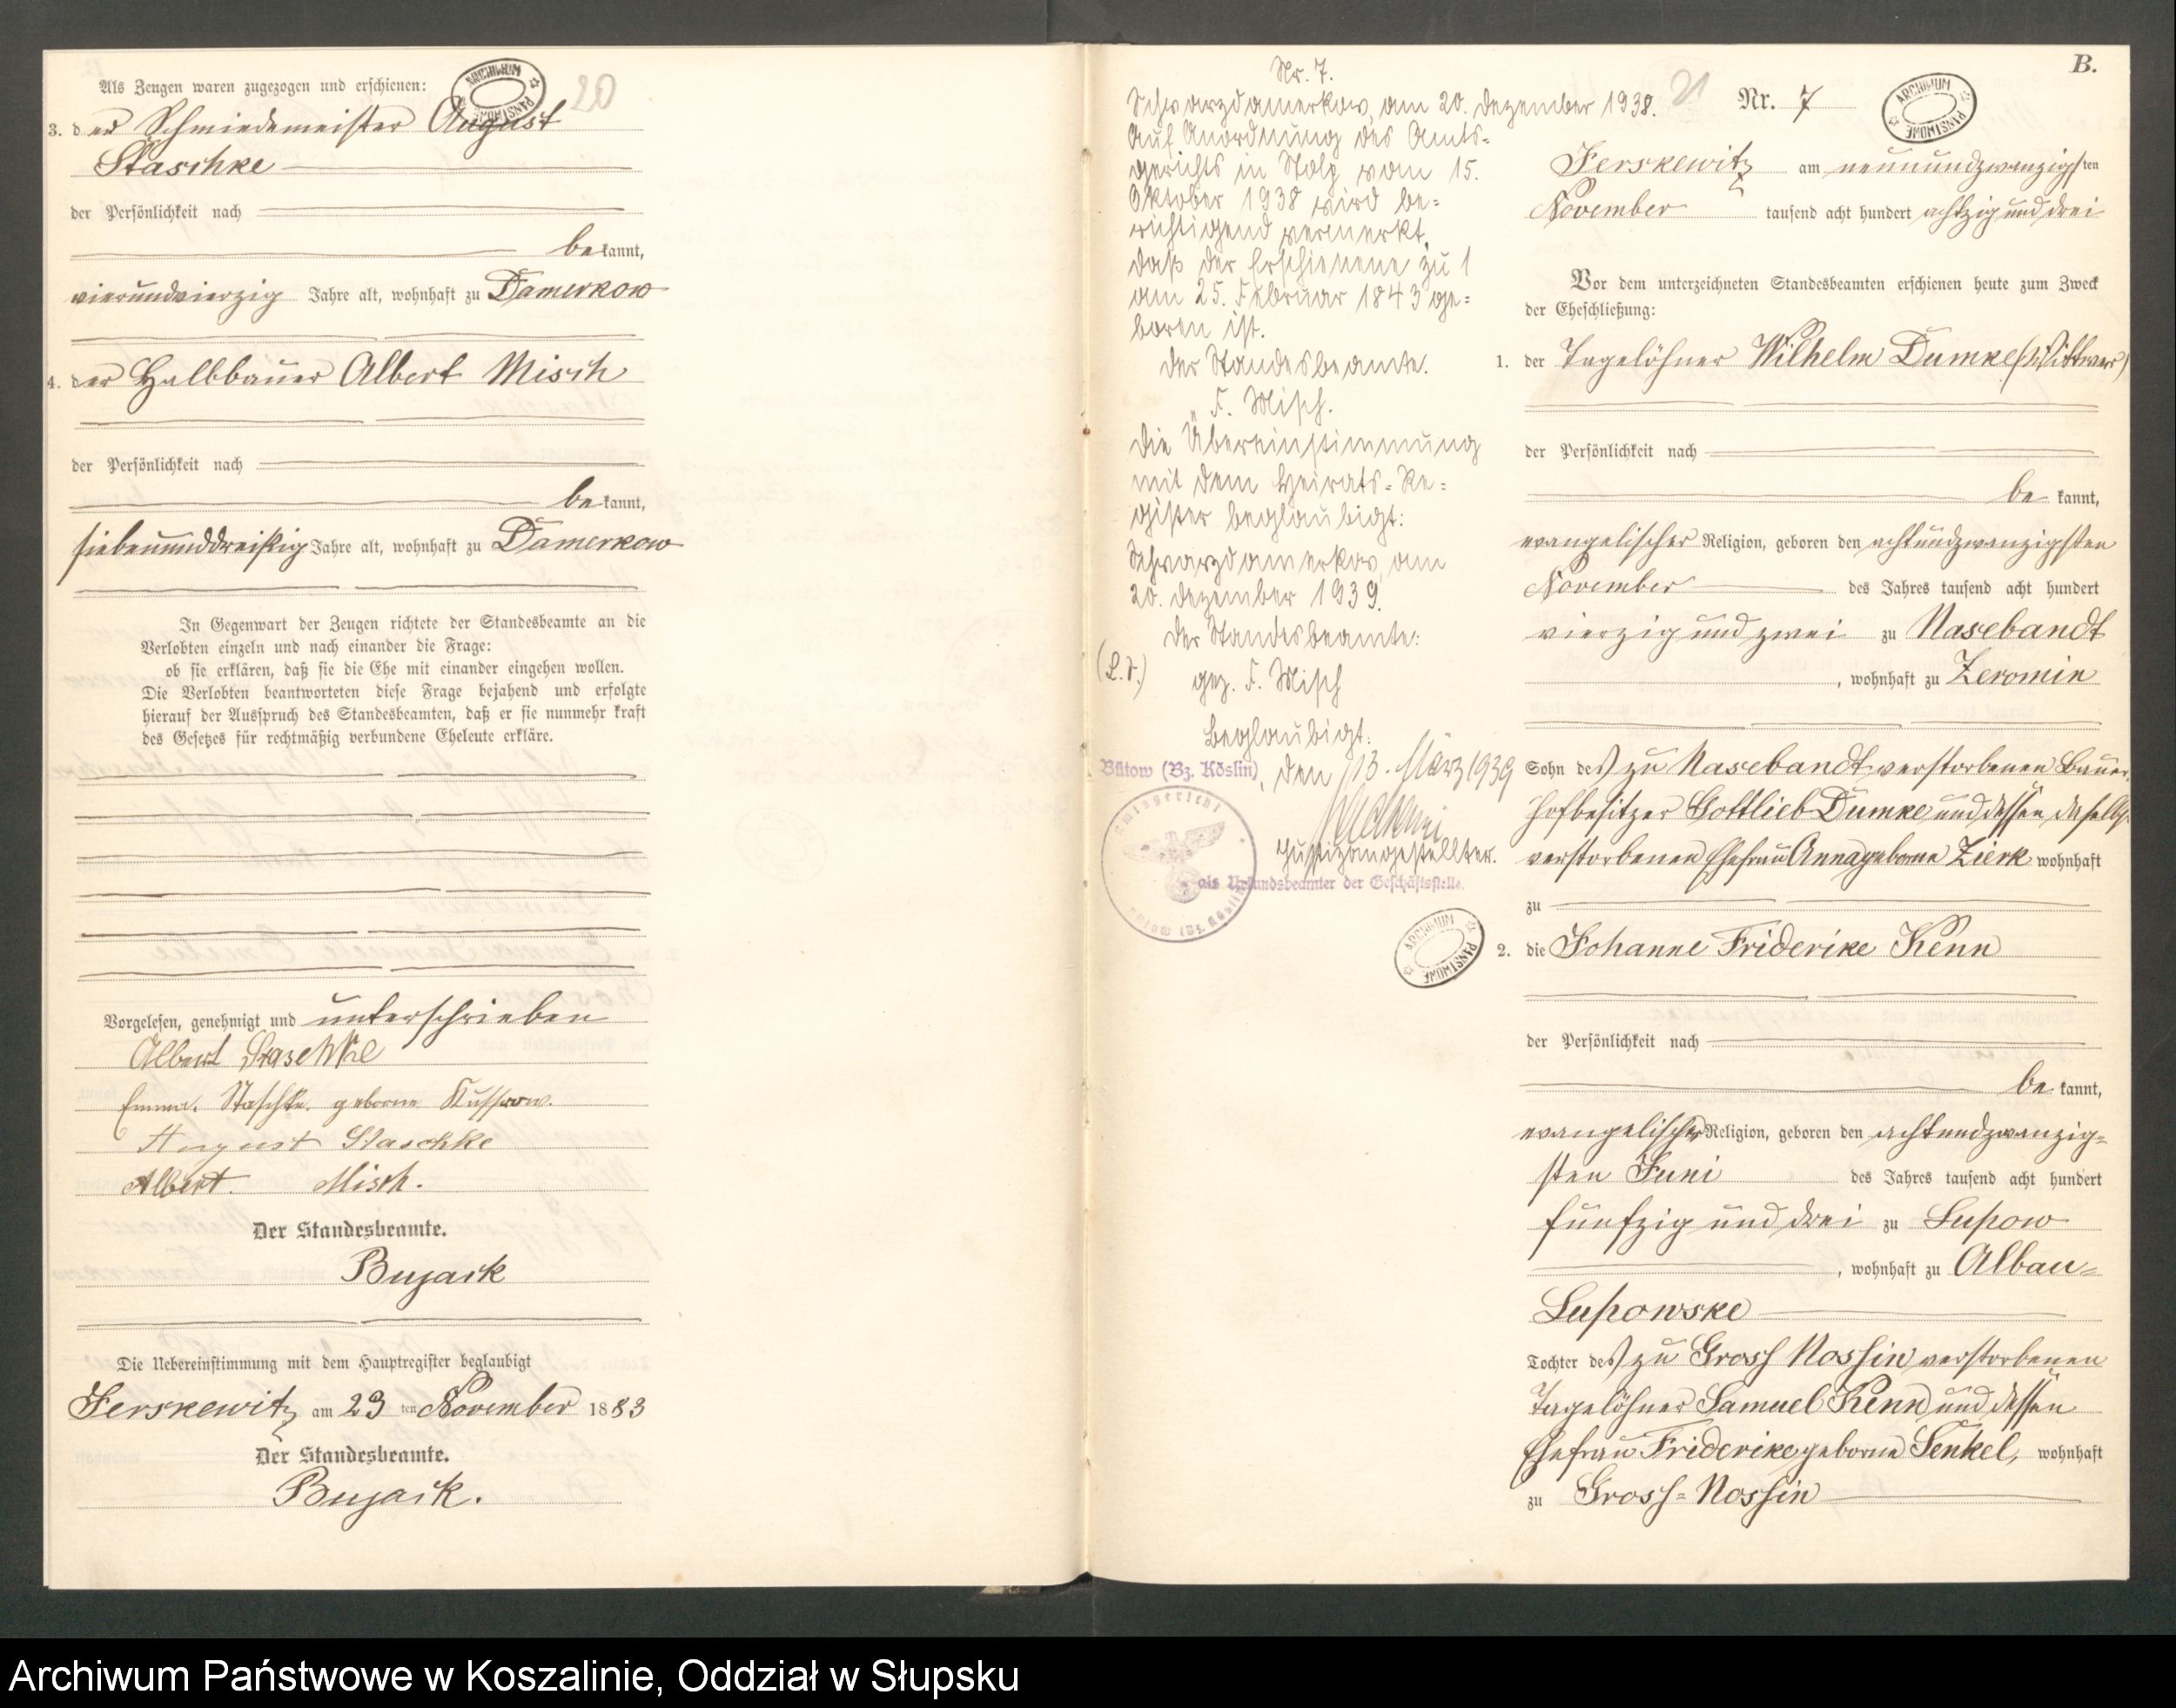 Als Zeugen waren zugezogen und erschienen:
20
3. der Schmiedemeister August
Staschke
der Persönlichkeit nach
bekannt,
vierundvierzig Jahre alt, wohnhaft zu Damerkow
4. der Halbbauer Albert Misch
der Persönlichkeit nach
bekannt,
siebenunddreißig Jahre alt, wohnhaft zu Damerkow
In Gegenwart der Zeugen richtete der Standesbeamte an die
Verlobten einzeln und nach einander die Frage:
ob sie erklären, daß sie die Ehe mit einander eingehen wollen.
Die Verlobten beantworteten diese Frage bejahend und erfolgte
hierauf der Ausspruch des Standesbeamten, daß er sie nunmehr kraft
des Gesetzes für rechtmäßig verbundene Eheleute erkläre.
Vorgelesen, genehmigt und unterschrieben
Albert Staschke
Emma Staschke geborne Kussrow.
August Staschke
Albert Misch.
Der Standesbeamte.
Bujack
Die Uebereinstimmung mit dem Hauptregister beglaubigt
Jerskewitz am 29 ten November 1883
Der Standesbeamte.
Bujack.
Nr. 7.
Schwarzdamerkow, am 20. Dezember 1938.
Auf Anordnung des Amts-
gerichts in Stolp vom 15.
Oktober 1938 wird be-
richtigend vermerkt,
daß der Erschienene zu 1
am 25. Februar 1843 ge-
boren ist.
Der Standesbeamte.
F. Misch.
Die Übereinstimmung
mit dem Heirats-Re-
gister beglaubigt:
Schwarzdamerkow, am
20. Dezember 1939.
Der Standesbeamte:
(L.S.)
gez. F. Misch
Beglaubigt:
Bütow (Bz. Köslin), den 13. März 1939
Justizangestellter.
als Urkundsbeamter der Geschäftsstelle.
Amtsgericht
Bütow (Bz. Köslin)
ARCHIWUM PAŃSTWOWE
21
B.
Nr. 7
ARCHIWUM PAŃSTWOWE
Jerskewitz am neunundzwanzigsten
November tausend acht hundert achtzig und drei
Vor dem unterzeichneten Standesbeamten erschienen heute zum Zweck
der Eheschließung:
1. der Tagelöhner Wilhelm Dumke (Wittwer)
der Persönlichkeit nach
bekannt,
evangelischer Religion, geboren den achtundzwanzigsten
November des Jahres tausend acht hundert
vierzig und zwei zu Nasebandt
, wohnhaft zu Zeromin
Sohn des zu Nasebandt verstorbenen Bauer-
hofbesitzer Gottlieb Dumke und dessen daselbst
verstorbenen Ehefrau Anna geborne Zierk wohnhaft
zu
2. die Johanne Friderike Kenn
der Persönlichkeit nach
bekannt,
evangelischer Religion, geboren den achtundzwanzig-
sten Juni des Jahres tausend acht hundert
fünfzig und drei zu Lupow
, wohnhaft zu Abbau-
Lupowske
Tochter des zu Gross Nossin verstorbenen
Tagelöhner Samuel Kenn und dessen
Ehefrau Friderike geborne Senkel, wohnhaft
zu Gross-Nossin
Archiwum Państwowe w Koszalinie, Oddział w Słupsku